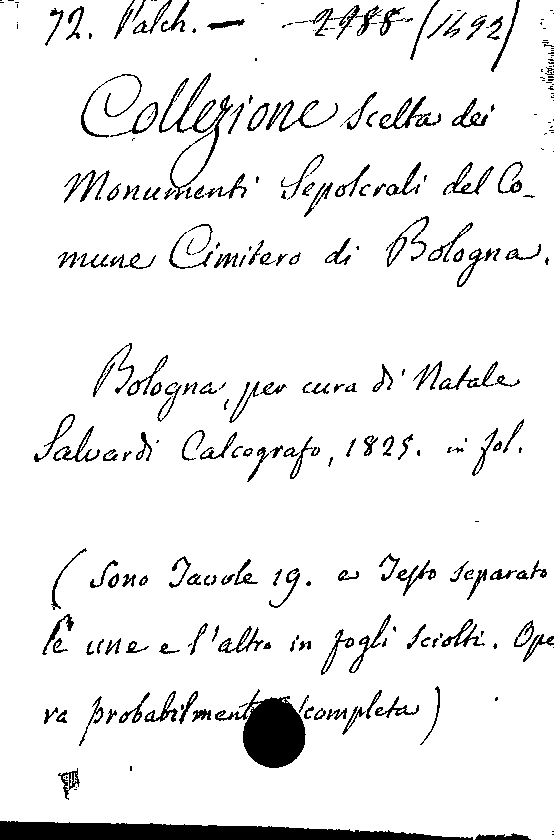 72. Palch. — 2988 (1492)
Collezione scelta dei
Monumenti Sepolcrali del Co-
mune Cimitero di Bologna.
Bologna, per cura di Natale
Salvardi Calcografo, 1825. in fol.
(Sono Tavole 19. e Testo separato
le une e l'altro in fogli sciolti. Ope
ra probabilment completa)